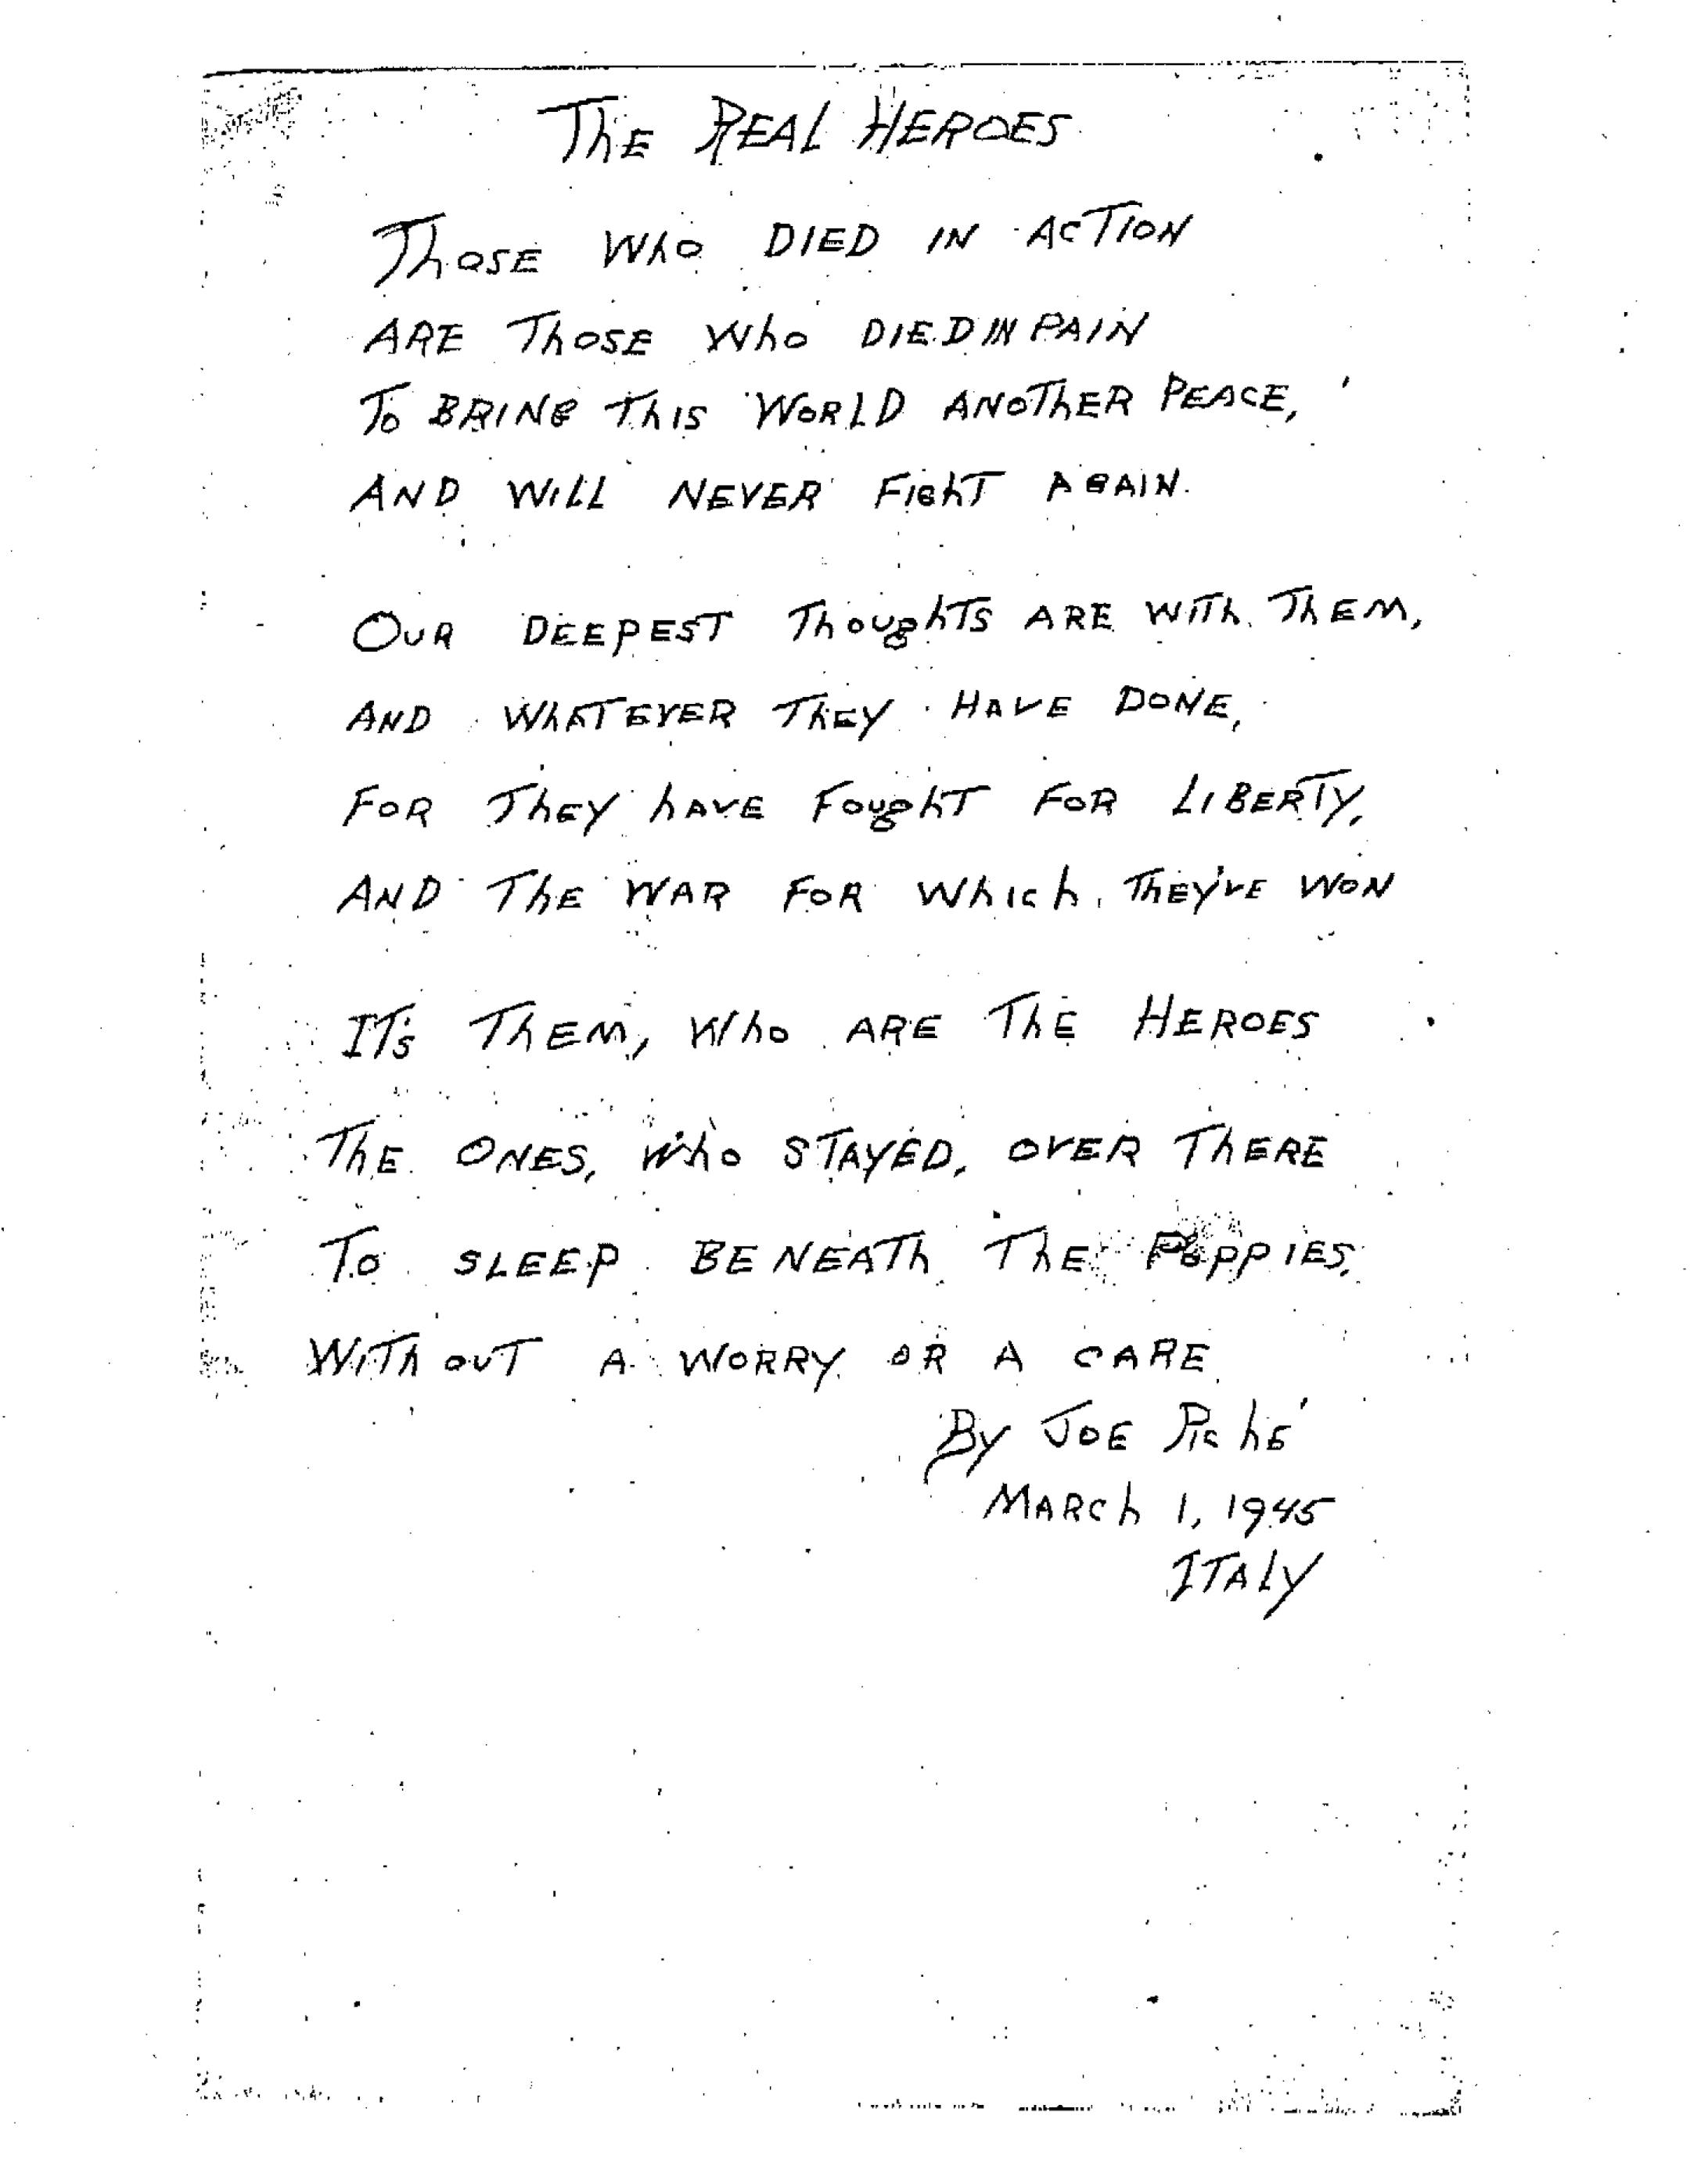 The REAL HEROES
Those Who DIED IN ACTION
ARE Those Who DIED IN PAIN
To BRING This WORLD ANOTHER PEACE,
AND WILL NEVER FIGhT AGAIN.
OUR DEEPEST ThoughTS ARE WITh ThEM,
AND WHATEVER ThEY HAVE DONE,
FOR ThEY hAVE FoughT FOR LIBERTY,
AND ThE WAR FOR Which ThEY'VE WON
IT's ThEM, Who ARE ThE HEROES
ThE ONES, Who STAYED, OVER ThERE
To SLEEP BENEATh ThE POPPIES,
WITHOUT A WORRY OR A CARE
By JOE Piché
MARCh 1, 1945
ITALY